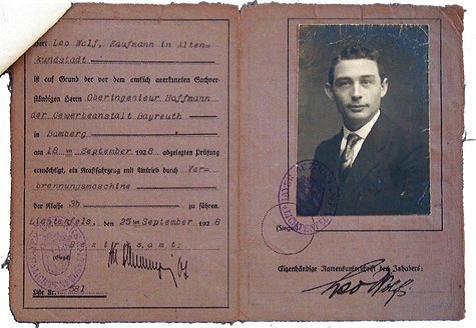 Herr Leo Wolf, Kaufmann in Alten-
kundstadt
ist auf Grund der vor dem amtlich anerkannten Sachver-
ständigen Herrn Oberingenieur Hoffmann
der Gewerbeanstalt Bayreuth
in Bamberg
am 10ten September 1928 abgelegten Prüfung
ermächtigt, ein Kraftfahrzeug mit Antrieb durch Ver-
brennungsmaschine
der Klasse 3b zu führen.
Lichtenfels, den 25ten September 1928
Bezirksamt:
(Siegel)
Liste Nr. 581
(Siegel)
Eigenhändige Namensunterschrift des Inhabers:
Leo Wolf.